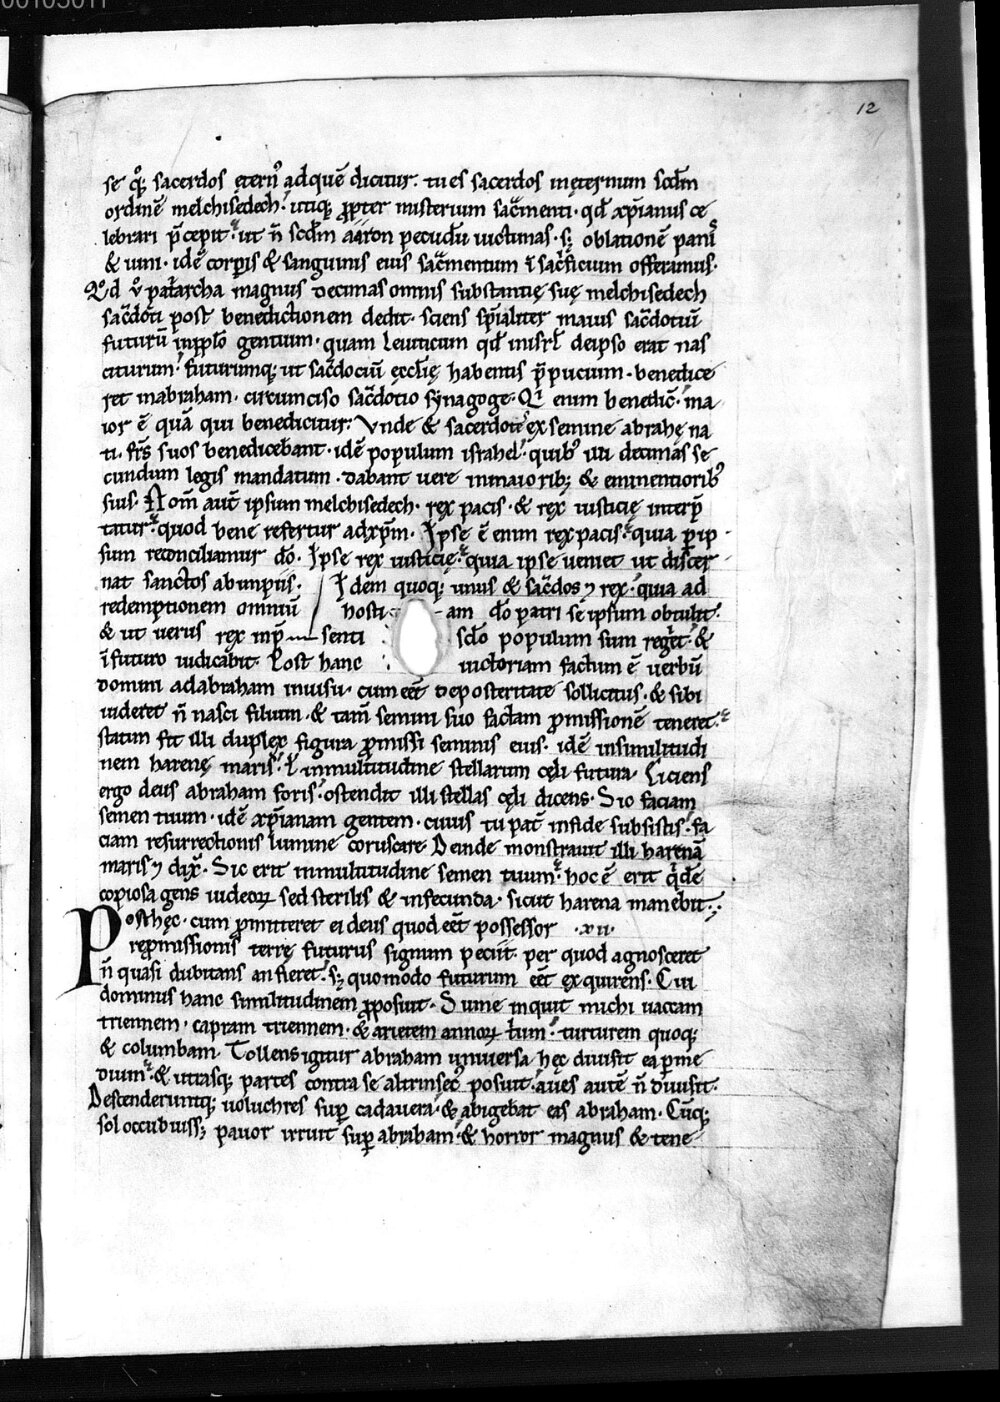 00103011
12
se qͦꝫ sacerdos ęternꝰ ad quē dicitur. tu es sacerdos in ęternum scd̄m
ordinē melchisedech. utiqꝫ ꝓpter misterium sac̄menti. qd̄ xp̄ianus ce
lebrari p̄cepit. ut n̄ scd̄m aaron pecudū uictimas. sꝫ oblationē panis
& uini. idē corꝑis & sanguinis eius sac̄mentum ī sac̄ficium offeramus.
Qd̄ ů pat̄archa magnus decimas omnis substantię suę melchisedech
sac̄doti post benedictionem dedit. sciens sp̄ialiter maius sac̄dotiū
futurū in pp̄lo gentium. quam leuiticum qd̄ in isrl̄ de ipso erat nas
citurum. futurumqꝫ ut sac̄dociū ęccl̄ię habentis p̄pucium. benedice
ret in abraham. circumciso sac̄dotio synagoge. Qͥ enim benedic̄. ma
ior ē quā qui benedicitur. Vnde & sacerdotes ex semine abrahę na
ti. fr̄s suos benedicebant. idē populum israhel. quibꝰ illi decimas se
cundum legis mandatum. dabant uere in maioribꝫ & eminentioribꝰ
suis. Nom̄ aut̄ ipsum melchisedech. rex pacis. & rex iusticię interp̄
tatur. quod bene refertur ad xp̄m. Ipse ē enim rex pacis. quia ꝑ ip
sum reconciliamur dō. Ipse rex iusticię. quia ipse ueniet ut discer
nat sanctos ab impiis. Idem quoqꝫ unus & sac̄dos ⁊ rex. quia ad
redemptionem omniū hosti am dō patri se ipsum obtulit.
& ut uerus rex in p̄ senti sc̄lo populum suum regeret. &
ī futuro iudicabit. Post hanc uictoriam factum ē uerbū
domini ad abraham in uisu. cum eēt de posteritate sollicitus. & sibi
uideret n̄ nasci filium. & tam̄ semini suo factam ꝓmissionē teneret.
statim fit illi duplex figura ꝓmissi seminis eius. idē in similitudi
nem harenę maris. ł in multitudine stellarum cęli futura. Eiciens
ergo deus abraham foris. ostendit illi stellas cęli dicens. Sic faciam
semen tuum. idē xp̄ianam gentem. cuius tu pat̄ in fide subsistis. fa
ciam resurrectionis lumine coruscare. Deinde monstrauit illi harenā
maris ⁊ dix̄. Sic erit in multitudine semen tuum. hoc ē erit qͥdē
copiosa gens iudeoꝝ sed sterilis & infecunda. sicut harena manebit.
Post hęc. cum ꝓmitteret ei deus quod eēt possessor .xii.
repromissionis terrę futurus signum peciit. per quod agnosceret
n̄ quasi dubitans an fieret. sꝫ quomodo futurum eēt exquirens. Cui
dominus hanc similitudinem ꝓposuit. Sume inquit michi uaccam
triennem. capram triennem. & arietem annoꝝ trium. turturem quoqꝫ
& columbam. Tollens igitur abraham uniuersa hęc diuisit ea ꝑ me
dium. & utrasqꝫ partes contra se altrinsecꝰ posuit. aues autē n̄ diuisit.
Descenderuntqꝫ uoluchres suꝑ cadauera. & abigebat eas abraham. Cūqꝫ
sol occubuissꝫ pauor irruit suꝑ abraham. & horror magnus & tene